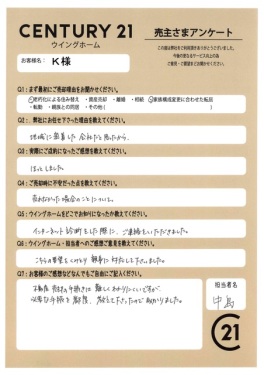 CENTURY 21
ウイングホーム
売主さまアンケート
この度は弊社をご利用頂きありがとうございました。
今後の更なるサービス向上の為
ご意見・ご要望をお聞かせください。
お客様名: K様
Q1: まず最初にご売却理由をお聞かせください。
・老朽化による住み替え ・資産売却 ・離婚 ・相続 ・家族構成変更に合わせた転居
・転勤 ・親族との同居 ・その他(
Q2: 弊社にお任せ下さった理由を教えてください。
地域に密着した会社だと思ったから。
Q3: 実際にご成約になったご感想を教えてください。
ほっとしました。
Q4: ご売却時に不安だった点を教えてください。
売れなかった場合のことについて。
Q5: ウイングホームをどこでお知りになったか教えてください。
インターネット診断をした際に、ご連絡をいただきました。
Q6: ウイングホーム・担当者へのご感想ご意見を教えてください。
こちらの要望をくみとり親身に対応して下さいました。
Q7: お客様のご感想などなんでもご自由にご記入ください。
不動産売却の手続きは難しくわかりにくいですが、
必要な手続を都度、教えて下さったので助かりました。
担当者名
中島
C21